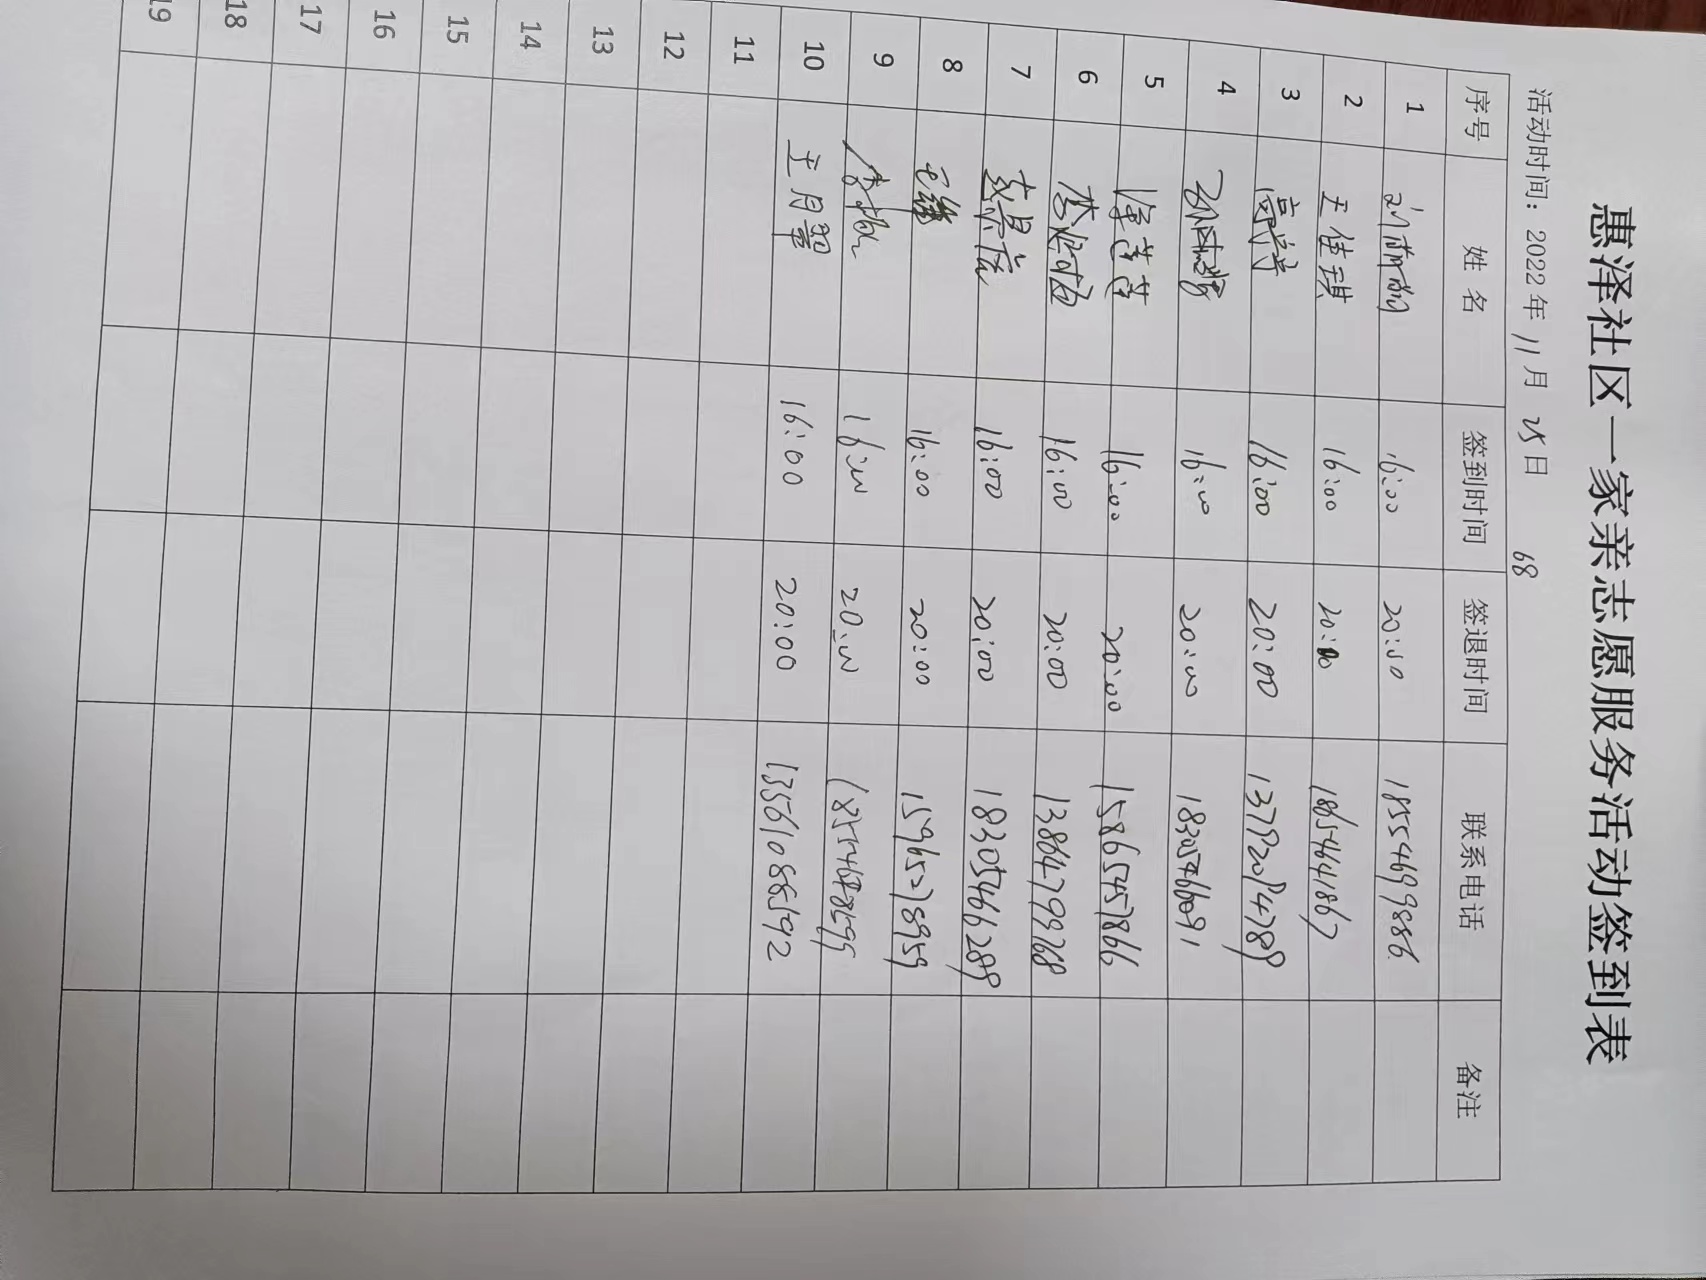 惠泽社区一家亲志愿服务活动签到表
活动时间：2022年11月25日 68
序号 姓名 签到时间 签退时间 联系电话 备注
1 16:00 20:00 18554699886
2 王佳琪 16:00 20:00 18654641867
3 16:00 20:00
4 16:00 20:00 18305466091
5 16:00 20:00 15865457866
6 16:00 20:00 13864799768
7 16:00 20:00 18305466289
8 16:00 20:00 15965278959
9 16:00 20:00
10 王月翠 16:00 20:00 13561088592
11
12
13
14
15
16
17
18
19